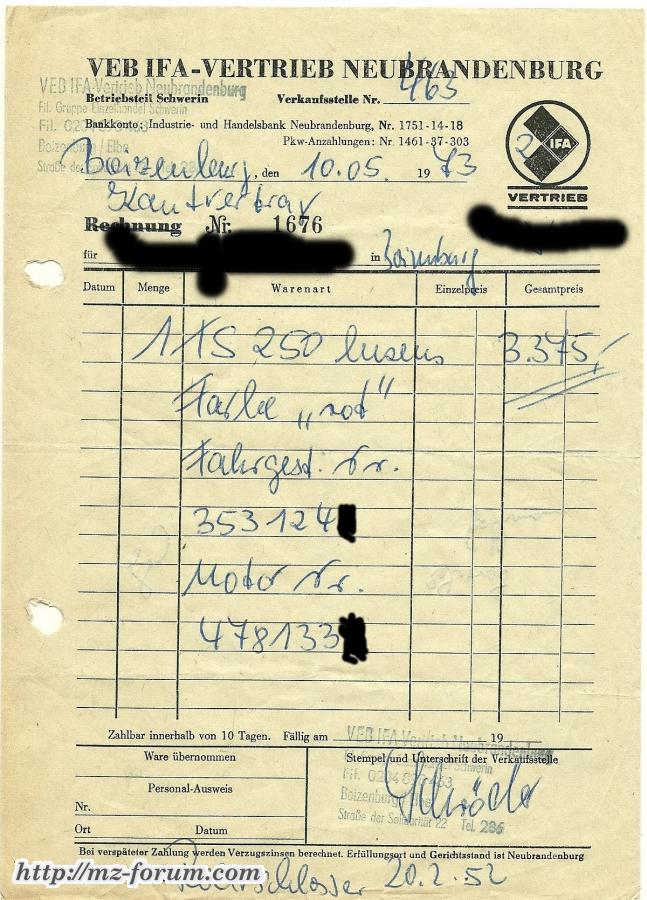 VEB IFA-VERTRIEB NEUBRANDENBURG
VEB IFA-Vertrieb Neubrandenburg
Fil. Gruppe Einzelhandel Schwerin
Fil. 0204 463
Boizenburg / Elbe
Straße der 
Betriebsteil Schwerin Verkaufsstelle Nr. 463
Bankkonto: Industrie- und Handelsbank Neubrandenburg, Nr. 1751-14-18
Pkw-Anzahlungen: Nr. 1461-37-303
IFA
VERTRIEB
Boizenburg, den 10.05. 1973
Kaufvertrag
Rechnung Nr. 1676
für in Boizenburg
Datum Menge Warenart Einzelpreis Gesamtpreis
1 TS 250 luxus 3.375,-
Farbe „rot"
Fahrgest. Nr.
353124
Motor Nr.
478133
Zahlbar innerhalb von 10 Tagen. Fällig am 19
VEB IFA-Vertrieb Neubrandenburg
Ware übernommen
Stempel und Unterschrift der Verkaufsstelle
Schwerin
Personal-Ausweis
Fil. 0204 463
Boizenburg
Nr.
Straße der Solidarität 22 Tel. 286
Ort Datum
Bei verspäteter Zahlung werden Verzugszinsen berechnet. Erfüllungsort und Gerichtsstand ist Neubrandenburg
20.2.52
http://mz-forum.com